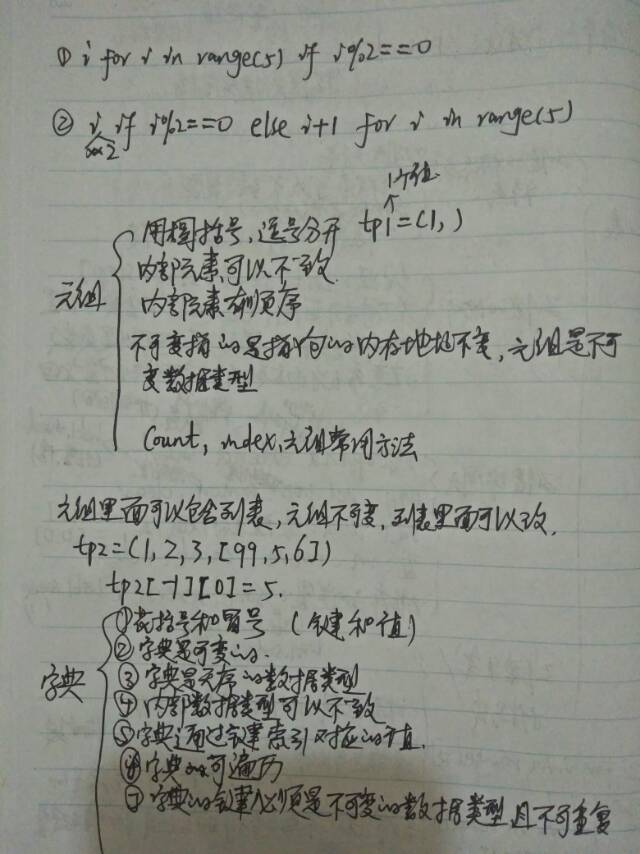 ① i for i in range(5) if i%2==0
② i if i%2==0 else i+1 for i in range(5)
1个值
用圆括号,逗号分开 tp1=(1,)
内部元素可以不一致
元组
内部元素有顺序
不可变指的是指向的内存地址不变,元组是不可
变数据类型
Count, index,元组常用方法
元组里面可以包含列表,元组不可变,列表里面可以改.
tp2=(1,2,3,[99,5,6])
tp2[-1][0]=5.
①花括号和冒号 (键和值)
②字典是可变的.
字典
③字典是无序的数据类型
④内部数据类型可以不一致
⑤字典通过键索引对应的值.
⑥字典可遍历
⑦字典的键必须是不可变的数据类型,且不可重复